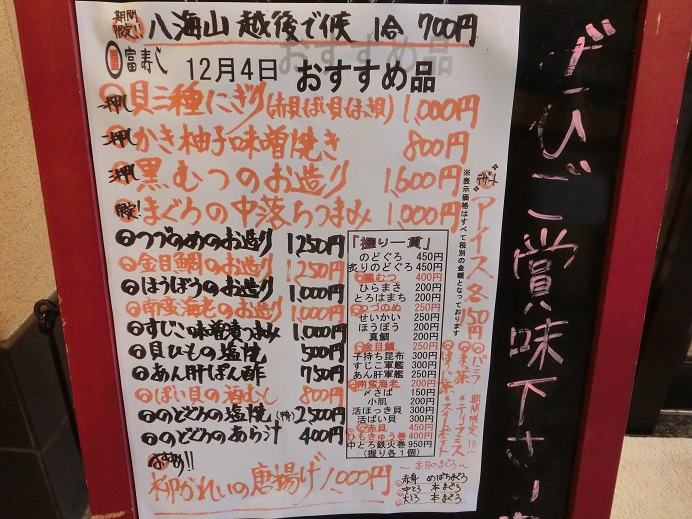 期間限定!! 八海山 越後で候 1合 700円
富寿し 12月4日 おすすめ品
押し 貝三種にぎり(赤貝 ばい貝 ほっき貝) 1,000円
押し かき柚子味噌焼き 800円
押し 黒むつのお造り 1,600円
限定! まぐろの中落ちつまみ 1,000円
つづのめのお造り 1,250円
金目鯛のお造り 1,250円
ほうぼうのお造り 1,000円
南蛮海老のお造り 1,000円
すじこ味噌漬つまみ 1,000円
貝ひもの塩焼 500円
あん肝ぽん酢 750円
ばい貝の酒むし 800円
のどぐろの塩焼(半身) 2,500円
のどぐろのあら汁 400円
おすすめ!!
柳がれいの唐揚げ 1,000円
「握り一貫」
のどぐろ 450円
炙りのどぐろ 450円
黒むつ 400円
ひらまさ 200円
とろはまち 200円
つづのめ 250円
せいかい 250円
ほうぼう 200円
真鯛 200円
金目鯛 250円
子持ち昆布 300円
すじこ軍艦 300円
あん肝軍艦 250円
南蛮海老 200円
〆さば 150円
小肌 200円
活ほっき貝 300円
活ばい貝 300円
赤貝 450円
ひもきゅう巻 400円
中とろ鉄火巻 950円
(握り各1個)
～本日のまぐろ～
赤身 めばちまぐろ
中とろ 本まぐろ
大とろ 本まぐろ
※表示価格はすべて税別の金額となっております
デザート
アイス各150円
バニラ
抹茶
ほうじ茶
期間限定!!
ティラミス
ぜひご賞味下さい